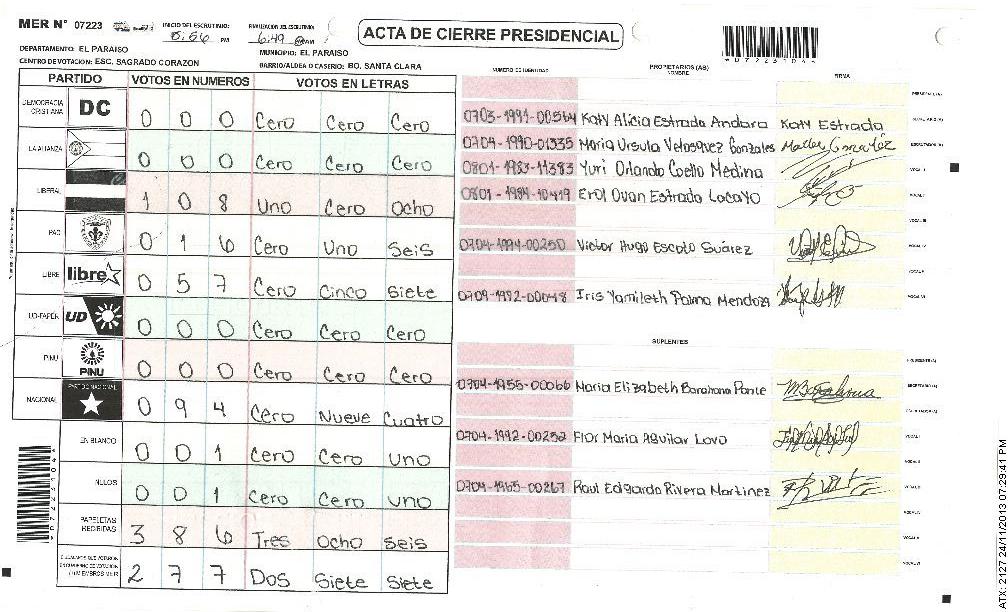 MER N° 07223
INICIO DEL ESCRUTINIO:
5:56 PM
FINALIZACION DEL ESCRUTINIO:
6:49
ACTA DE CIERRE PRESIDENCIAL
*07223104*
DEPARTAMENTO: EL PARAISO
MUNICIPIO: EL PARAISO
CENTRO DE VOTACION: ESC. SAGRADO CORAZON
BARRIO/ALDEA O CASERIO: BO. SANTA CLARA
PARTIDO VOTOS EN NUMEROS VOTOS EN LETRAS
DEMOCRACIA CRISTIANA DC 0 0 0 Cero Cero Cero
LA ALIANZA 0 0 0 Cero Cero Cero
LIBERAL 1 0 8 Uno Cero Ocho
PAC 0 1 6 Cero Uno Seis
LIBRE libre 0 5 7 Cero Cinco Siete
UD-FAPER UD 0 0 0 Cero Cero Cero
PINU PINU 0 0 0 Cero Cero Cero
NACIONAL PARTIDO NACIONAL 0 9 4 Cero Nueve Cuatro
EN BLANCO 0 0 1 Cero Cero uno
NULOS 0 0 1 Cero Cero uno
PAPELETAS RECIBIDAS 3 8 6 Tres Ocho Seis
CIUDADANOS QUE VOTARON EN CUADERNO DE VOTACION (+) MIEMBROS MER 2 7 7 Dos Siete Siete
NUMERO DE IDENTIDAD PROPIETARIOS (AS) NOMBRE FIRMA
PRESIDENTE(A)
0703-1991-00564 Katy Alicia Estrada Andara Katy Estrada SECRETARIO(A)
0704-1990-01335 Maria Ursula Velasquez Gonzales ESCRUTADOR(A)
0801-1983-11383 Yuri Orlando Coello Medina VOCAL I
0801-1984-10419 Erol Ovan Estrada Lacayo VOCAL II
VOCAL III
0704-1994-00250 Victor Hugo Escoto Suárez VOCAL IV
VOCAL V
0709-1992-00048 Iris Yamileth Palma Mendoza VOCAL VI
SUPLENTES
PRESIDENTE(A)
0704-1955-00066 Maria Elizabeth Barahona Ponce SECRETARIO(A)
ESCRUTADOR(A)
0704-1992-00252 Flor Maria Aguilar Lovo VOCAL I
VOCAL II
0704-1965-00267 Raul Edgardo Rivera Martinez VOCAL III
VOCAL IV
VOCAL V
VOCAL VI
*07223104*
ATX: 2127 24/11/2013 07:29:41 PM